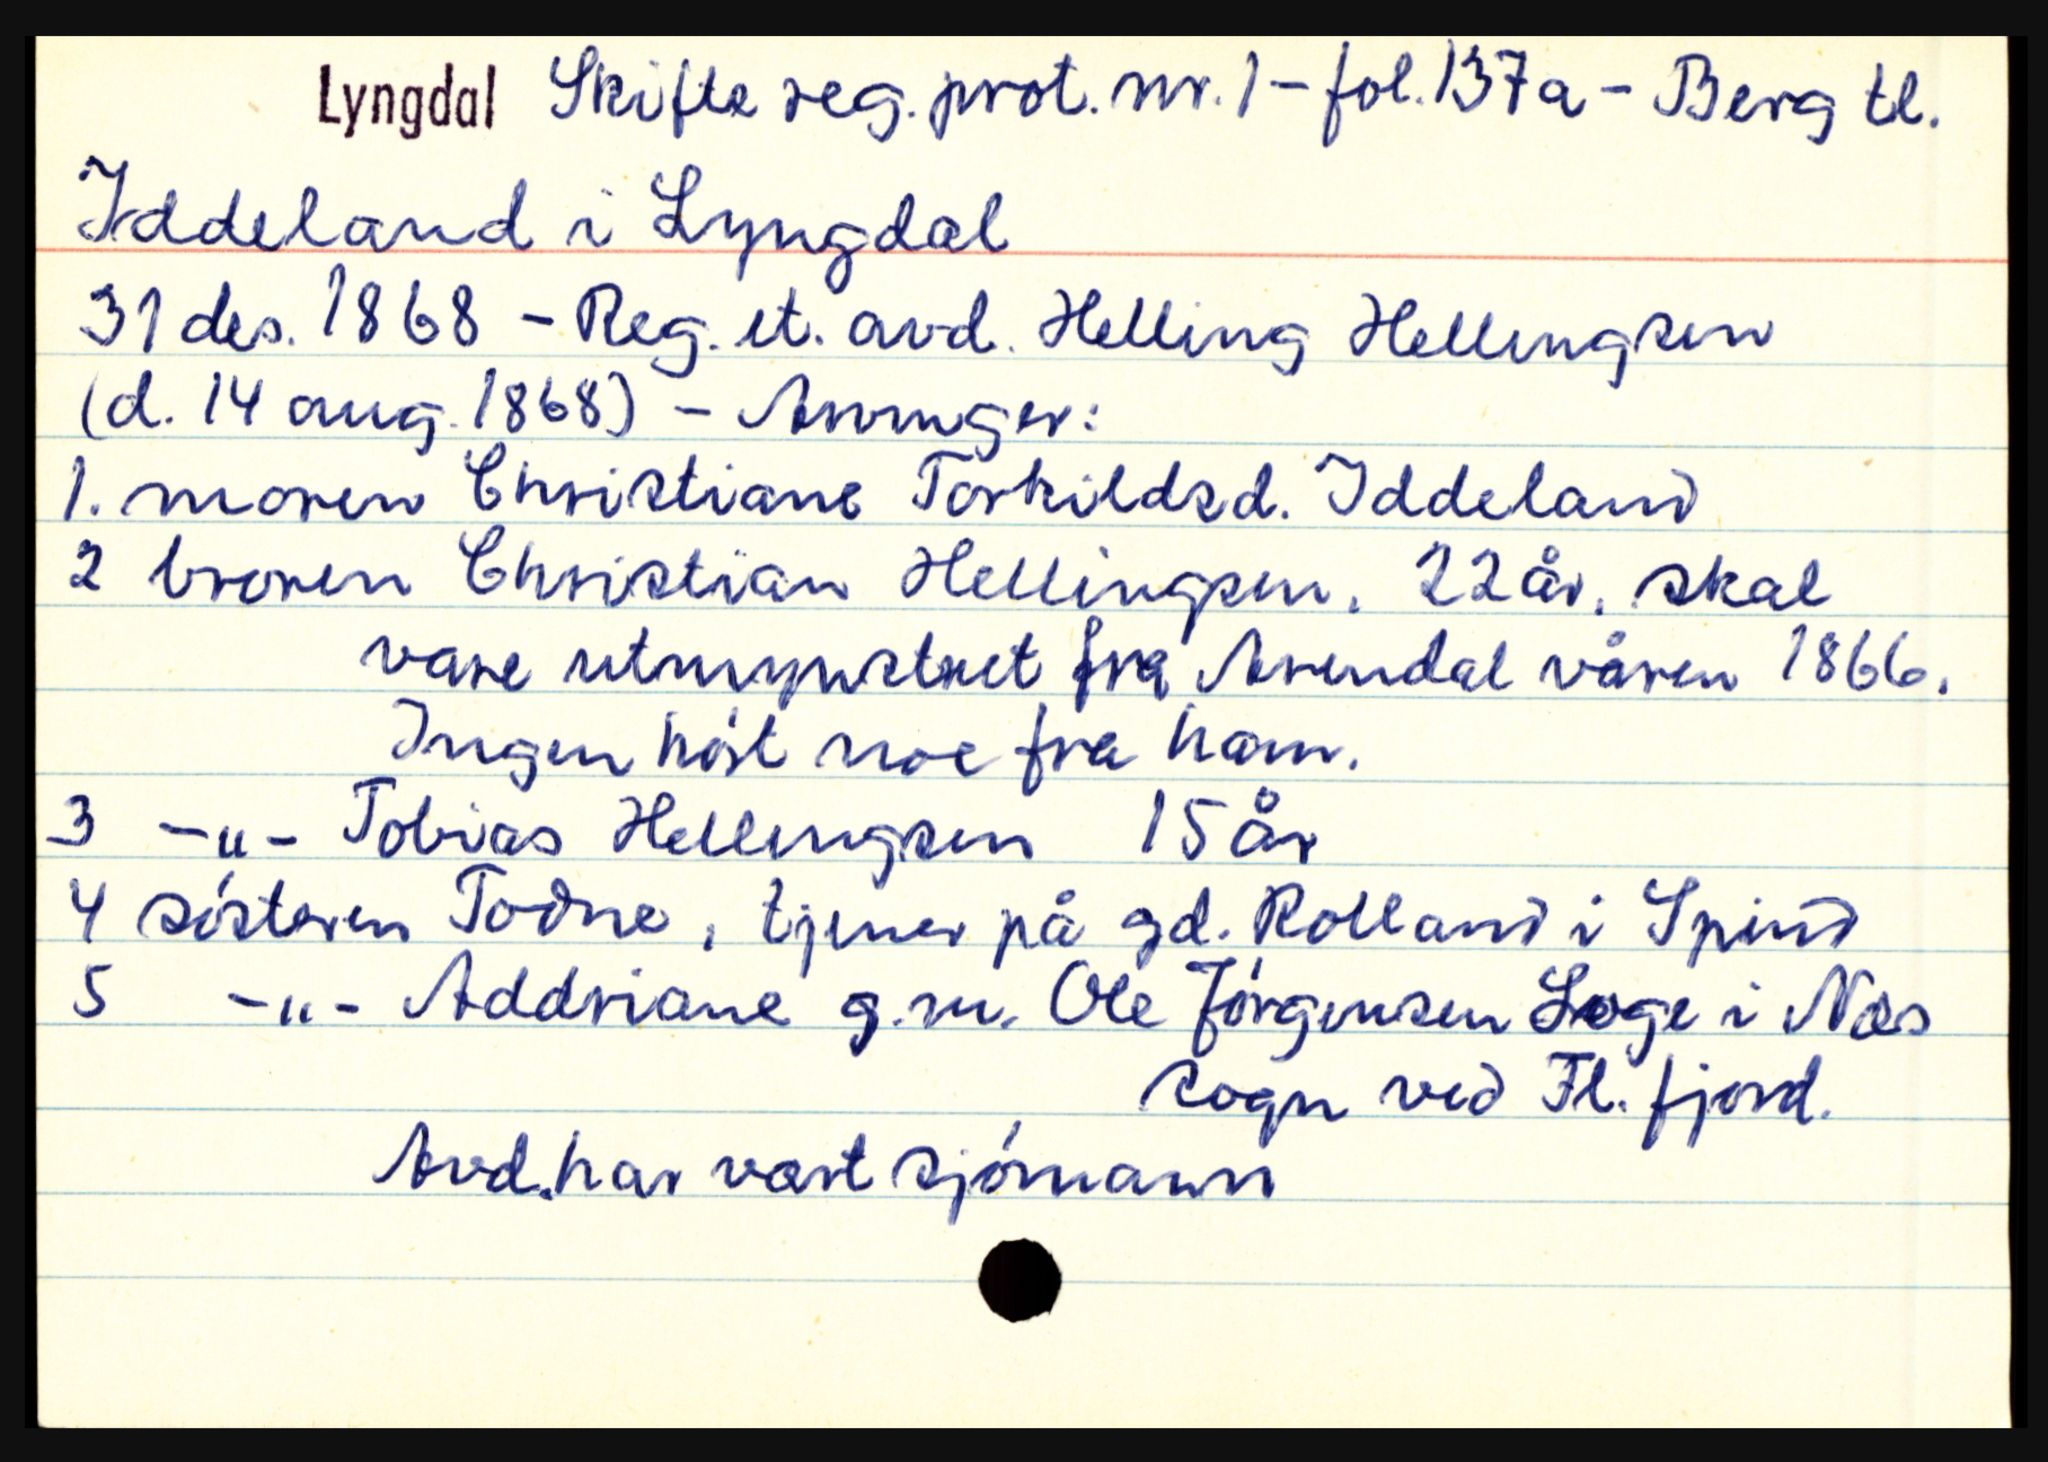 Lyngdal Skifte reg. prot. nr. 1 - fol. 137a - Berg tl.
Iddeland i Lyngdal
31 des. 1868 - Reg. et. avd. Helling Hellingsen
(d. 14 aug. 1868) - Arvinger:
1. moren Christiane Torkildsd. Iddeland
2 broren Christian Hellingsen, 22 år, skal
være utmynstret fra Arendal våren 1866.
Ingen hört noe fra ham.
3 -"- Tobias Hellingsen 15 år
4 sösteren Todne, tjener på gd. Rolland i Spind
5 -"- Addriane g.m. Ole Jörgensen Loge i Næs
sogn ved Fl. fjord.
Avd. har vært sjömann